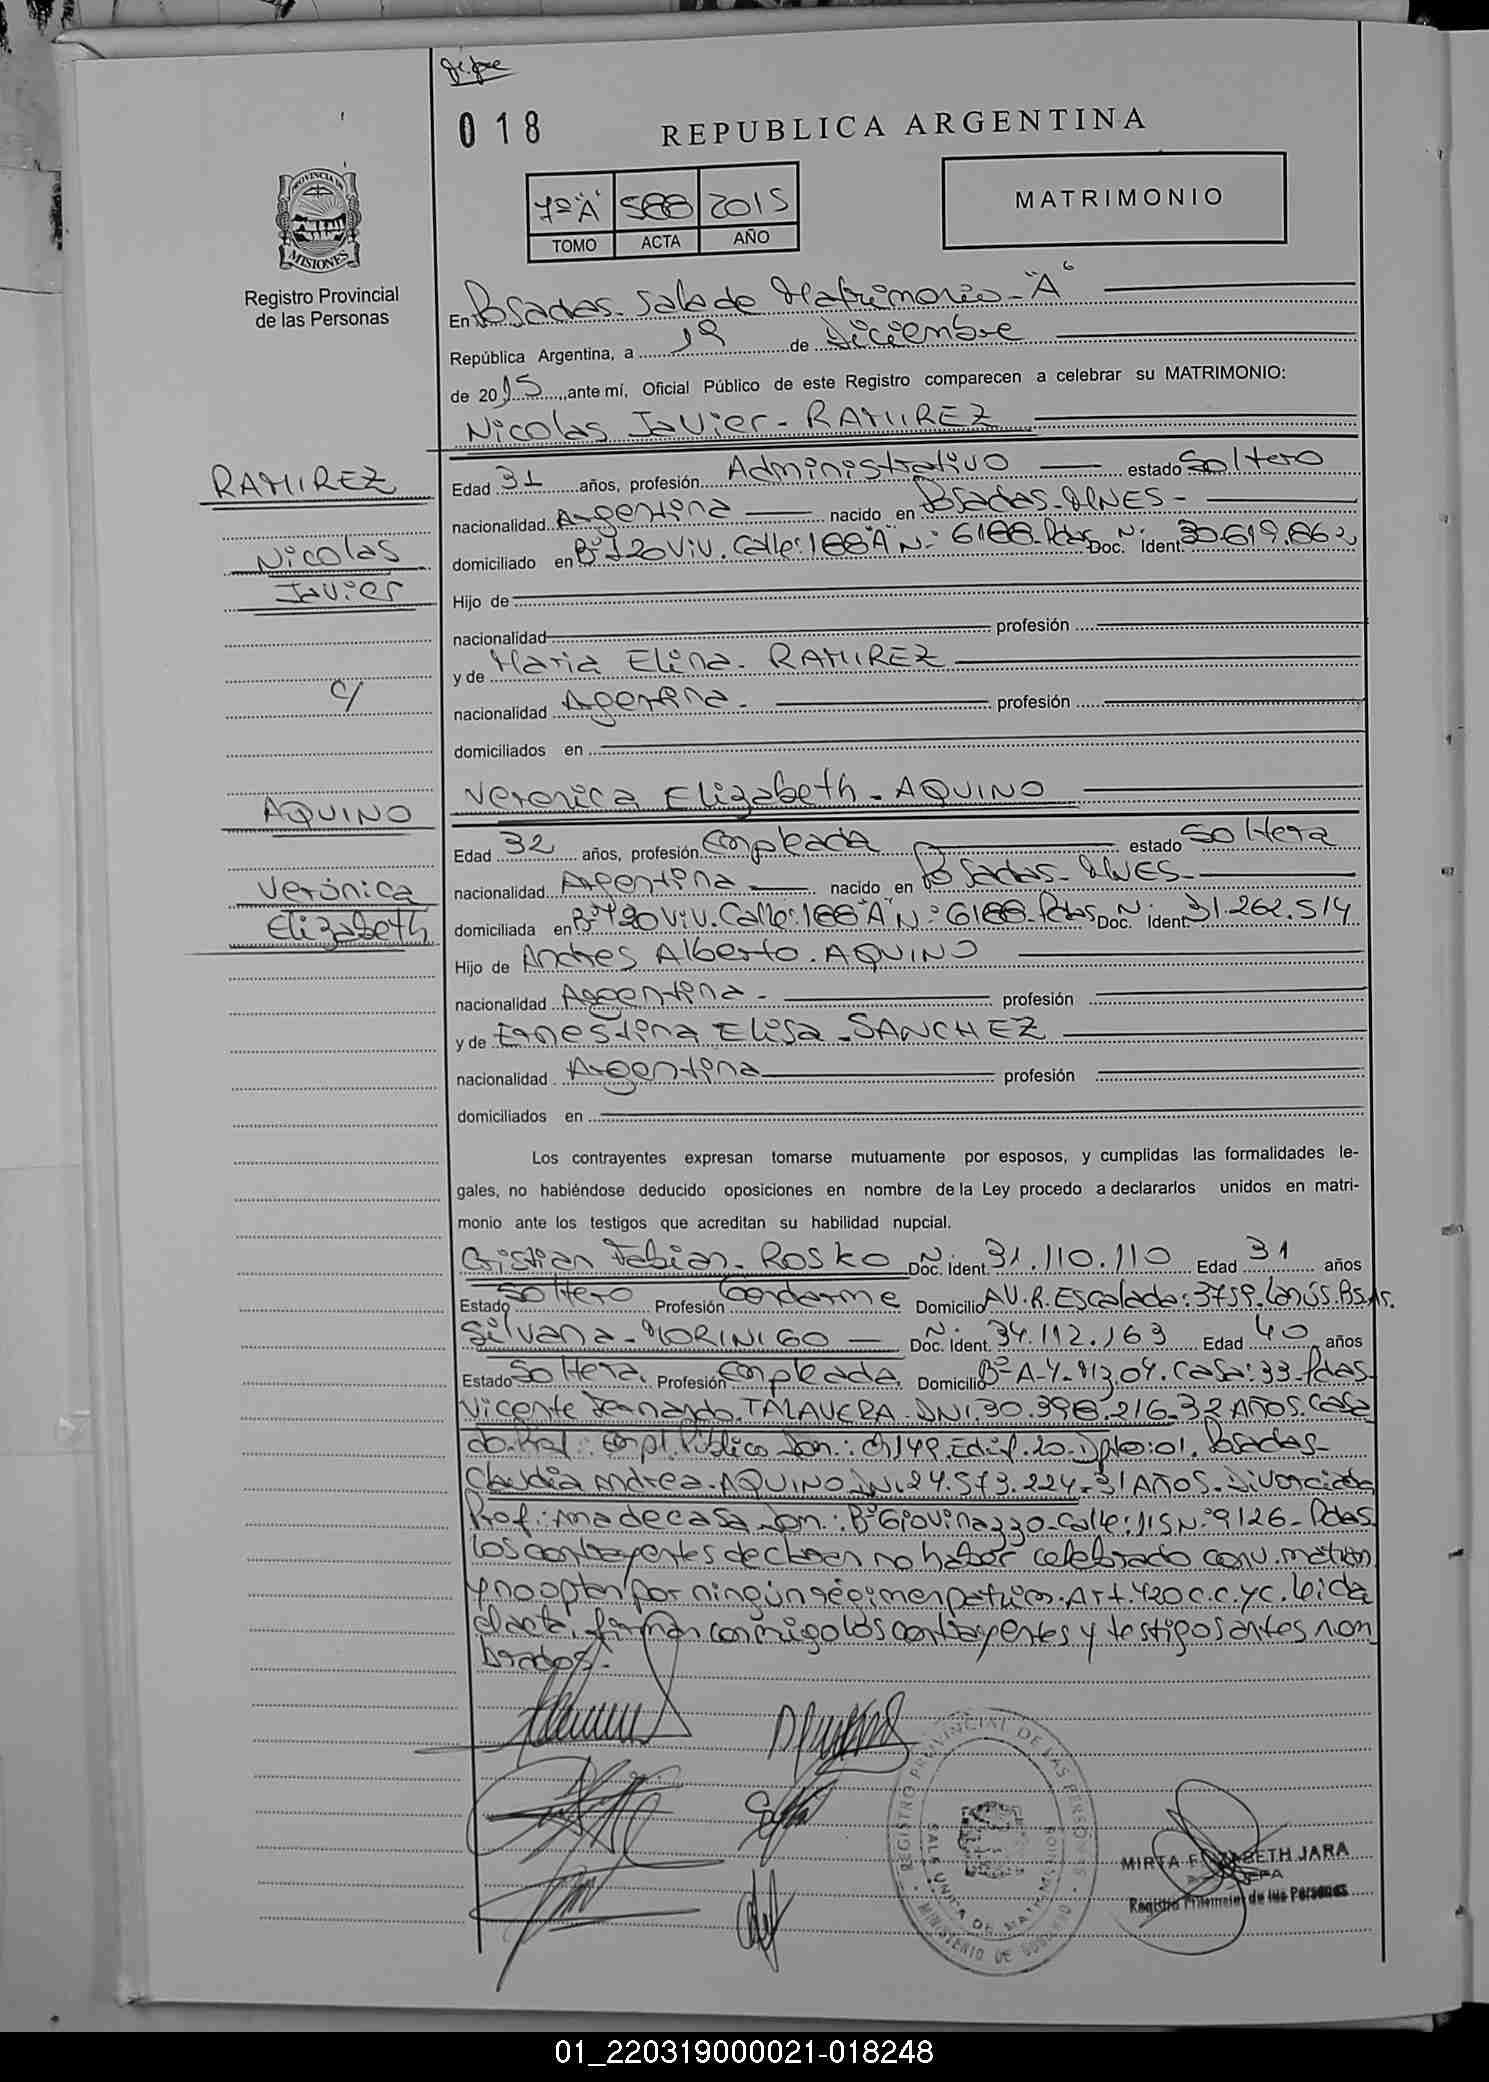 018
REPUBLICA ARGENTINA
PROVINCIA DE
MISIONES
Registro Provincial
de las Personas
7º "A" 588 2015
TOMO ACTA AÑO
MATRIMONIO
En Posadas - Sala de Matrimonio - "A"
República Argentina, a 19 de Diciembre
de 2015, ante mí, Oficial Público de este Registro comparecen a celebrar su MATRIMONIO:
Nicolas Javier - RAMIREZ
RAMIREZ
Nicolas
Javier
c/
AQUINO
Verónica
Elizabeth
Edad 31 años, profesión Administrativo estado Soltero
nacionalidad Argentina nacido en Posadas - MNES -
domiciliado en Bº 120 Viv. Calle: 188 "A" Nº: 6188 - Pdas Doc. Nº Ident. 30.619.862
Hijo de
nacionalidad profesión
y de Maria Elina - RAMIREZ
nacionalidad Argentina - profesión
domiciliados en
Veronica Elizabeth - AQUINO
Edad 32 años, profesión Empleada estado Soltera
nacionalidad Argentina nacido en Posadas - MNES -
domiciliada en Bº 120 Viv. Calle: 188 "A" Nº: 6188 - Pdas Doc. Nº Ident. 31.262.514
Hijo de Andres Alberto - AQUINO
nacionalidad Argentina - profesión
y de Ernestina Elisa - SANCHEZ
nacionalidad Argentina profesión
domiciliados en
Los contrayentes expresan tomarse mutuamente por esposos, y cumplidas las formalidades le-
gales, no habiéndose deducido oposiciones en nombre de la Ley procedo a declararlos unidos en matri-
monio ante los testigos que acreditan su habilidad nupcial.
Cristian Fabian - ROSKO Doc. Nº Ident. 31.110.110 Edad 31 años
Estado Soltero Profesión Gendarme Domicilio AV. R. Escalada: 3759. Lanús. Bs. As.
Silvana - MORINIGO Doc. Nº Ident. 34.112.163 Edad 40 años
Estado Soltera Profesión Empleada Domicilio Bº A-4 - Mz 04. Casa: 33 - Pdas
Vicente Fernando TALAVERA - DNI. 30.398.216 - 32 AÑOS. Casa
do. Prof.: Empl. Público Dom.: Ch 149. Edif. 20 - Dpto: 01. Posadas -
Claudia Andrea - AQUINO DNI. 24.573.224 - 31 AÑOS - Divorciada
Prof.: Ama de casa Dom.: Bº Giovinazzo - Calle: 115 Nº 9126 - Pdas.
los contrayentes declaran no haber celebrado conv. matrim
y no optan por ningún régimen patrim. Art. 420 C.C. y C. Leida
el acta, firman conmigo los contrayentes y testigos antes nom
brados -
REGISTRO PROVINCIAL DE LAS PERSONAS
MINISTERIO DE GOBIERNO
MIRTA ELIZABETH JARA
Registro Provincial de las Personas
01_220319000021-018248